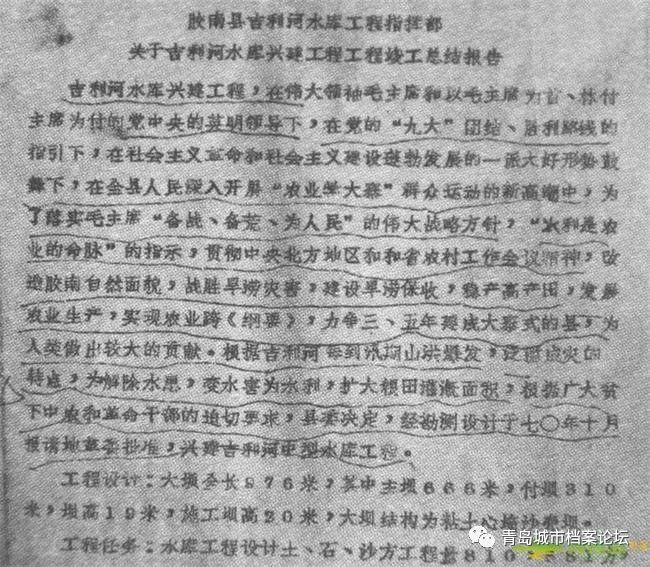 胶南县吉利河水库工程指挥部
关于吉利河水库兴建工程工程竣工总结报告
吉利河水库兴建工程，在伟大领袖毛主席和以毛主席为首、林付
主席为付的党中央的英明领导下，在党的“九大”团结、胜利路线的
指引下，在社会主义革命和社会主义建设蓬勃发展的一派大好形势鼓
舞下，在全县人民深入开展“农业学大寨”群众运动的新高潮中，为
了落实毛主席“备战、备荒、为人民”的伟大战略方针，“水利是农
业的命脉”的指示，贯彻中央北方地区和和省农村工作会议精神，改
造胶南自然面貌，战胜旱涝灾害，建设旱涝保收，稳产高产田，发展
农业生产，实现农业跨《纲要》，力争三、五年建成大寨式的县，为
人类做出较大的贡献。根据吉利河每到汛期山洪爆发，泛滥点灾的
特点，为解除水患，变水害为水利，扩大粮田灌溉面积，根据广大贫
下中农和革命干部的迫切要求，县委决定，经勘测设计于七〇年十月
报请地革委批准，兴建吉利河中型水库工程。
工程设计：大坝全长976米，其中主坝666米，付坝310
米，坝高19米，施工坝高20米，大坝结构为粘土心墙
工程任务：水库工程设计土、石、沙方工程量810
青岛城市档案论坛